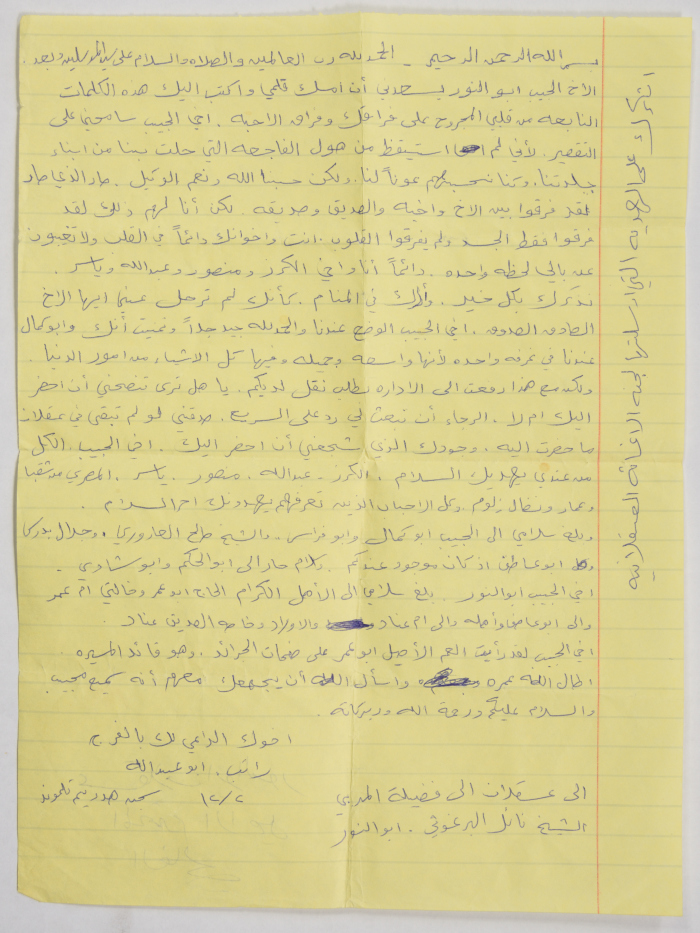 بسم الله الرحمن الرحيم - الحمد لله رب العالمين والصلاه والسلام على سيد المرسلين وبعد.
الاخ الحبيب ابو النور يسعدني أن امسك قلمي واكتب اليك هذه الكلمات
النابعه من قلبي المجروح على فراقك وفراق الاحبه. اخي الحبيب سامحني على
التقصير. لأني لم استيقظ من هول الفاجعه التي حلت بينا من ابناء
جلدتنا. وكنا نحسبهم عوناً لنا. ولكن حسبنا الله ونعم الوكيل. صار الذي صار
لقد فرقوا بين الاخ واخيه والصديق وصديقه. لكن أنا لهم ذلك لقد
فرقوا فقط الجسد ولم يفرقوا القلوب. انت واخوانك دائماً في القلب ولا تغيبون
عن بالي لحظه واحده. دائماً أنا واخي الكرز ومنصور وعبدالله وياسر.
نذكرك بكل خير. وأراك في المنام. كأنك لم ترحل عني ايها الاخ
الصادق الصدوق. اخي الحبيب الوضع عندنا والحمدلله جيد جداً وتمنيت أنك وابو كمال
عندنا في غرفه واحده لأنها واسعه وجميله وفيها كل الاشياء من امور الدنيا.
ولكن مع هذا رفعت الى الاداره بطلب نقل لديكم. يا هل ترى تنصحني أن احضر
اليك ام لا. الرجاء أن تبعث لي رد على السريع. صدقني لو لم تبقى في عسقلان
ما حضرت اليه. وجودك الذي شجعني أن احضر اليك. اخي الحبيب الكل
من عندي يهديك السلام. الكرز. عبدالله. منصور. ياسر. المصري من شقبا
وعمار ونضال زلوم. وكل الاحباب الذين تعرفهم يهدونك احر السلام.
وبلغ سلامي الى الحبيب ابو كمال وابو فراس. والشيخ صالح العاروري. وجلال بوركي
ابو عاطف اذ كان موجود عندكم. وسلام حار الى ابو الحكم وابو شادي.
اخي الحبيب ابو النور. بلغ سلامي الى الأهل الكرام الحاج ابو عمر وخالتي ام عمر
والى ابو عاطف وأهله والى ام عناد والاولاد وخاصه الصديق عناد.
اخي الحبيب لقد رأيت العم الأصيل ابو عمر على صفحات الجرائد. وهو قائد المسيره.
اطال الله عمره واسأل الله أن يجمعك معهم أنه سميع مجيب
والسلام عليكم ورحمة الله وبركاته.
اخوك الداعي لك بالفرج
رائب. ابو عبدالله
١٢/٢ سجن هداريم تلموند
الى عسقلان الى فضيلة المربي
الشيخ نائل البرغوثي. ابو النور
اشكرك على الهديه التي ارسلتها لجنه الاغاثه العسقلانيه